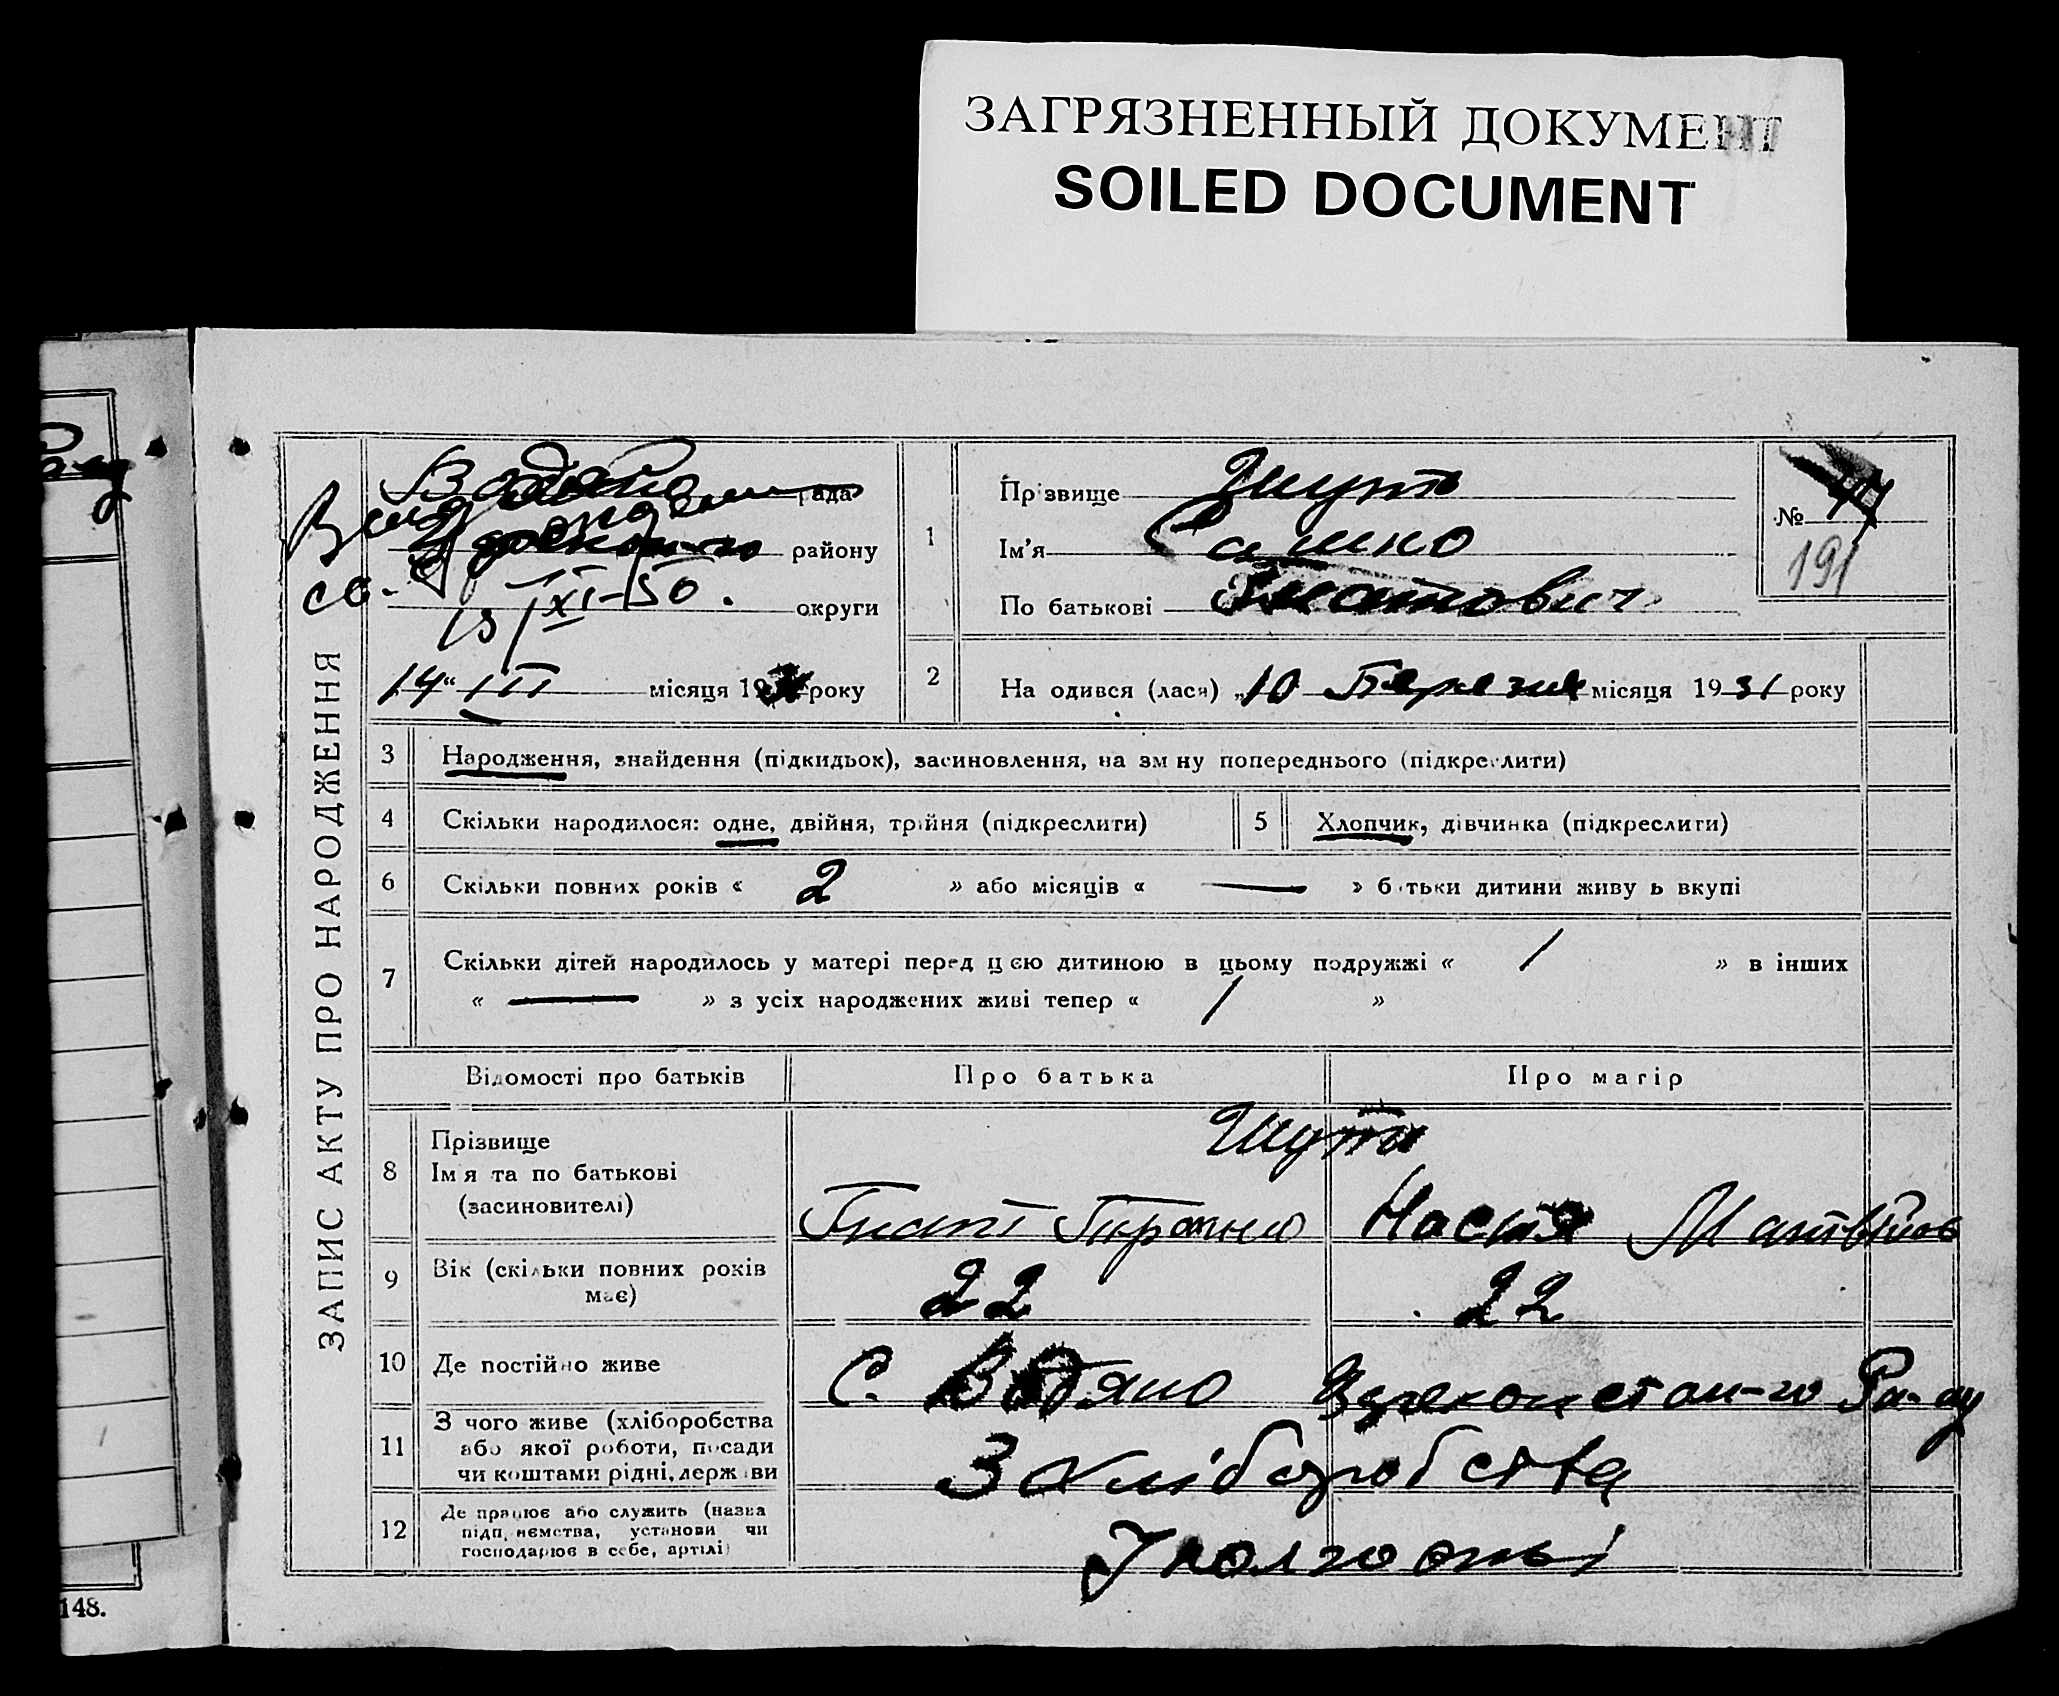 ЗАГРЯЗНЕННЫЙ ДОКУМЕНТ
SOILED DOCUMENT
ЗАПИС АКТУ ПРО НАРОДЖЕННЯ
рада
району
св.
15/XI-50.
округи
„14“ III місяця 19 року
1
Прізвище Шут
Ім'я Сашко
По батькові Гнатович
№
191
2
На одився (лася) „10 Березня місяця 1931 року
3 Народження, знайдення (підкидьок), засиновлення, на зм ну попереднього (підкреслити)
4 Скільки народилося: одне, двійня, трійня (підкреслити) 5 Хлопчик, дівчинка (підкреслити)
6 Скільки повних років « 2 » або місяців « — » б тьки дитини живу ь вкупі
7 Скільки дітей народилось у матері перед цією дитиною в цьому подружжі « 1 » в інших
« — » з усіх народжених живі тепер « 1 »
Відомості про батьків Про батька Про матір
8 Прізвище
Ім я та по батькові
(засиновителі)
Шути
Гнат Настя Матвіїв
9 Вік (скільки повних років має) 22 22
10 Де постійно живе С. Водяно Ра-ну
11 З чого живе (хліборобства
або якої роботи, посади
чи коштами рідні, держ ви
З хліборобства
12 Де працює або служить (назва
підп иємства, установи чи
господарює в себе, артілі)
У колгоспі
148.